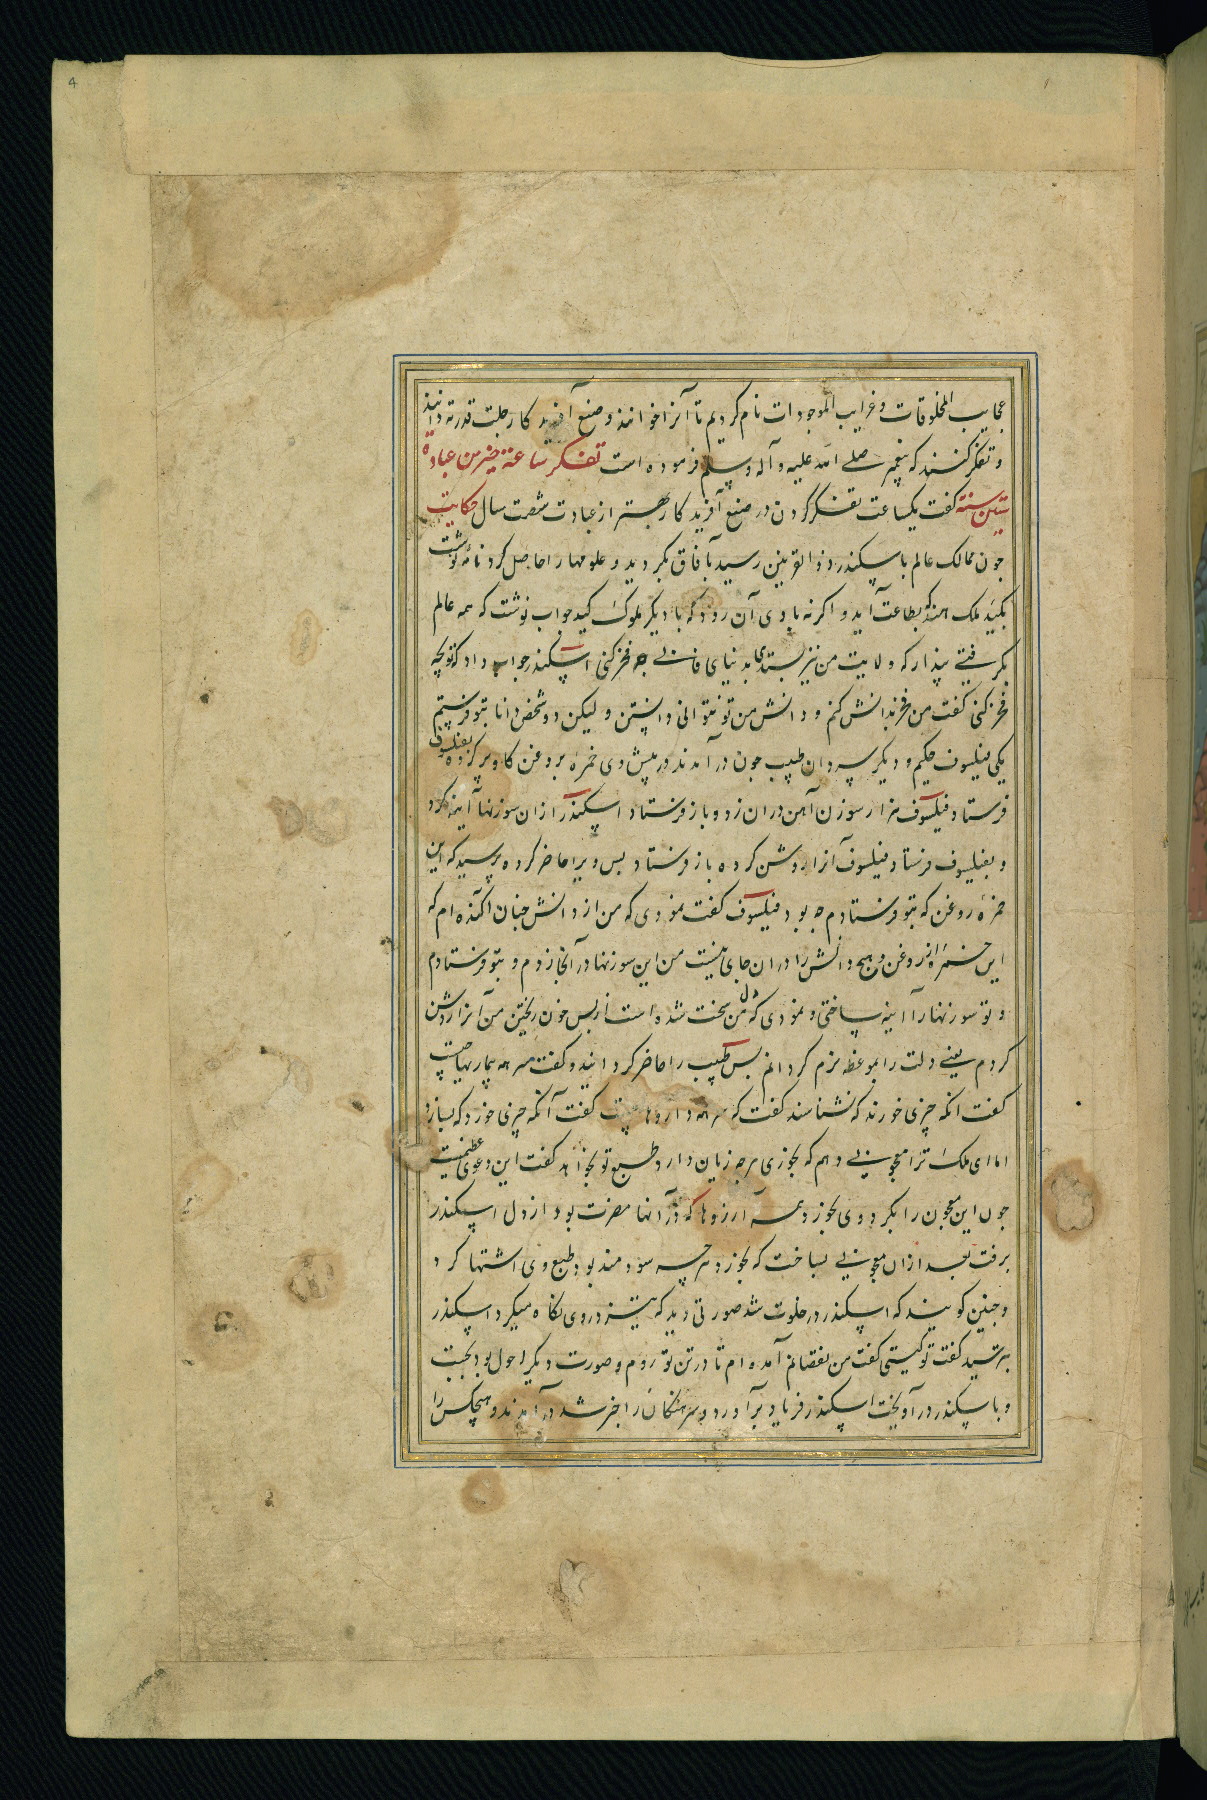 4
عجایب المخلوقات و غرایب الموجودات نام کردیم تا آنرا خوانند و صنع آفریدکار جلت قدرته دانند
و تفکر کنند که پیغمبر صلی الله علیه و آله و سلم فرموده است تفکر ساعة خیر من عبادة
ستین سنة گفت یکساعت تفکر کردن در صنع آفریدکار بهتر از عبادت شصت سال حکایت
جون ممالک عالم باسکندر ذوالقرنین رسید بآفاق بکردید و علومها را حاصل کرد نامه نوشت
بکید ملک هند که بطاعت آید و اکرنه با وی آن رود که با دیکر ملوک کید جواب نوشت که همه عالم
بکرفتی پندار که ولایت من نیز بستدی بدنیای فانی جه فخر کنی اسکندر جواب داد که تو بچه
فخر کنی گفت من فخر بدانش کنم و دانش من تو نتوانی دانستن و لیکن دو شخص دانا بتو فرستم
یکی فیلسوف حکیم و دیکر طبیب جون درآمدند در پیش وی خمره بروغن کاو پر کرده بفیلسوف
فرستاد فیلسوف هزار سوزن آهن در آن زد و باز فرستاد اسکندر از آن سوزنها آینه کرد
و بفیلسوف فرستاد فیلسوف آنرا روشن کرده باز فرستاد بس ویرا حاضر کرده پرسید که این
خمره روغن که بتو فرستادم جه بود فیلسوف گفت نمودی که من از دانش جنان آکنده ام که
این خمره از روغن و هیچ دانش را در آن جای نیست من این سوزنها در آنجا زدم و بتو فرستادم
و تو سوزنها را آینه ساختی و نمودی که دل من سخت شده است از بس خون ریختن من آنرا روشن
کردم یعنی دلت را بموعظه نرم کردانم بس طبیب را حاضر کردانید و گفت سر همه بیماریها چیست
گفت انکه چیزی خورند که نشناسند گفت که سر همه داروها چیست گفت آنکه چیزی خورد که بسازد
اما ای ملک ترا معجونی دهم که بخوری هرجه زیان دارد طبع تو نخواهد گفت این دعوی عظیمست
جون این معجون را بکرد وی بخورد همه آرزوها که در آنها مضرت بود از دل اسکندر
برفت بعد از آن معجونی بساخت که بخورد هرچه سودمند بود طبع وی اشتها کرد
و جنین کویند که اسکندر در خلوت شد صورتی دید که تیز در وی نکاه میکرد اسکندر
بترسید گفت تو کیستی گفت من نقصانم آمده ام تا در تن تو روم و صورت دیکر احول بود بجست
و با اسکندر درآویخت اسکندر فریاد برآورد و سرهنکان را خبر شد درآمدند و هیچکس را